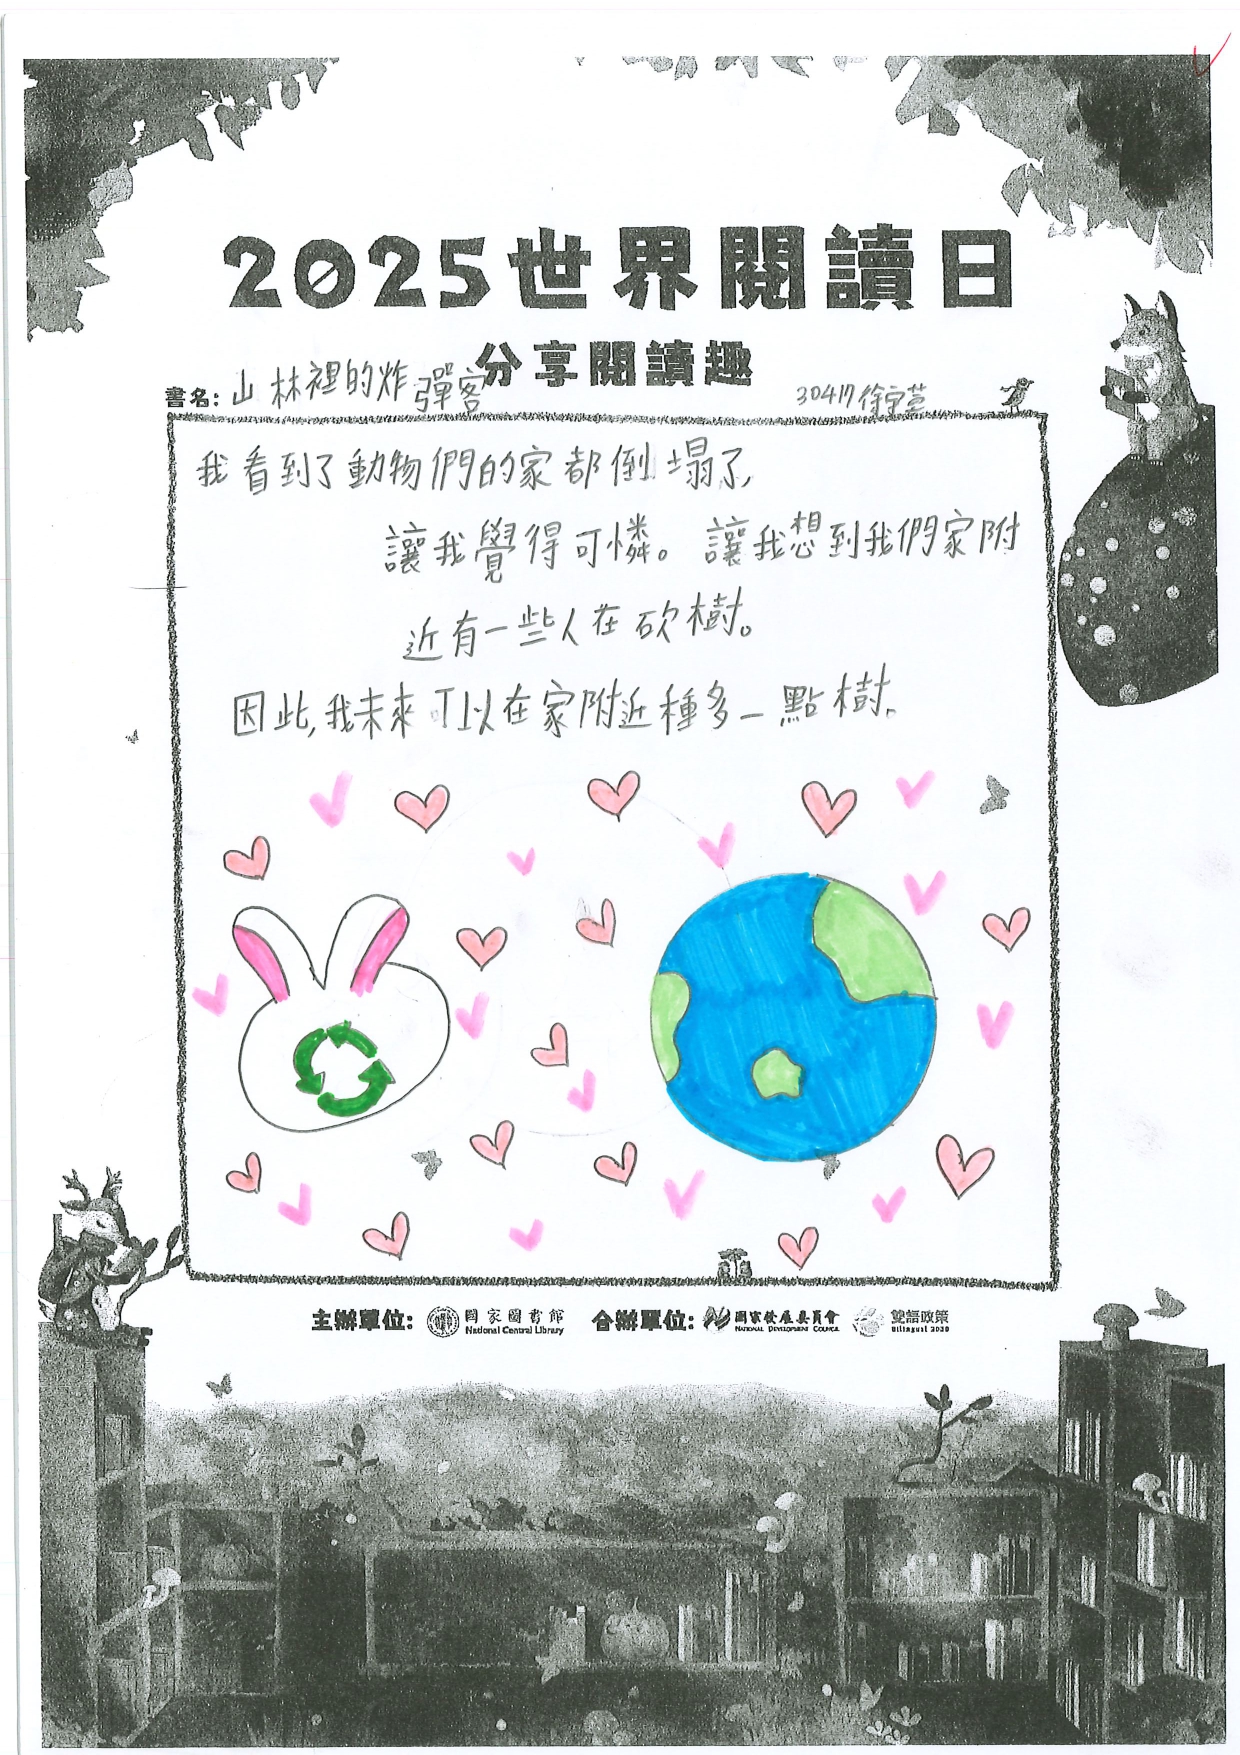 2025世界閱讀日
分享閱讀趣
書名: 山林裡的炸彈客
30417 徐宇萱
我看到了動物們的家都倒塌了,
讓我覺得可憐。讓我想到我們家附
近有一些人在砍樹。
因此,我未來可以在家附近種多一點樹。
主辦單位: 國家圖書館 National Central Library 合辦單位: 國家發展委員會 NATIONAL DEVELOPMENT COUNCIL 雙語政策 Bilingual 2030